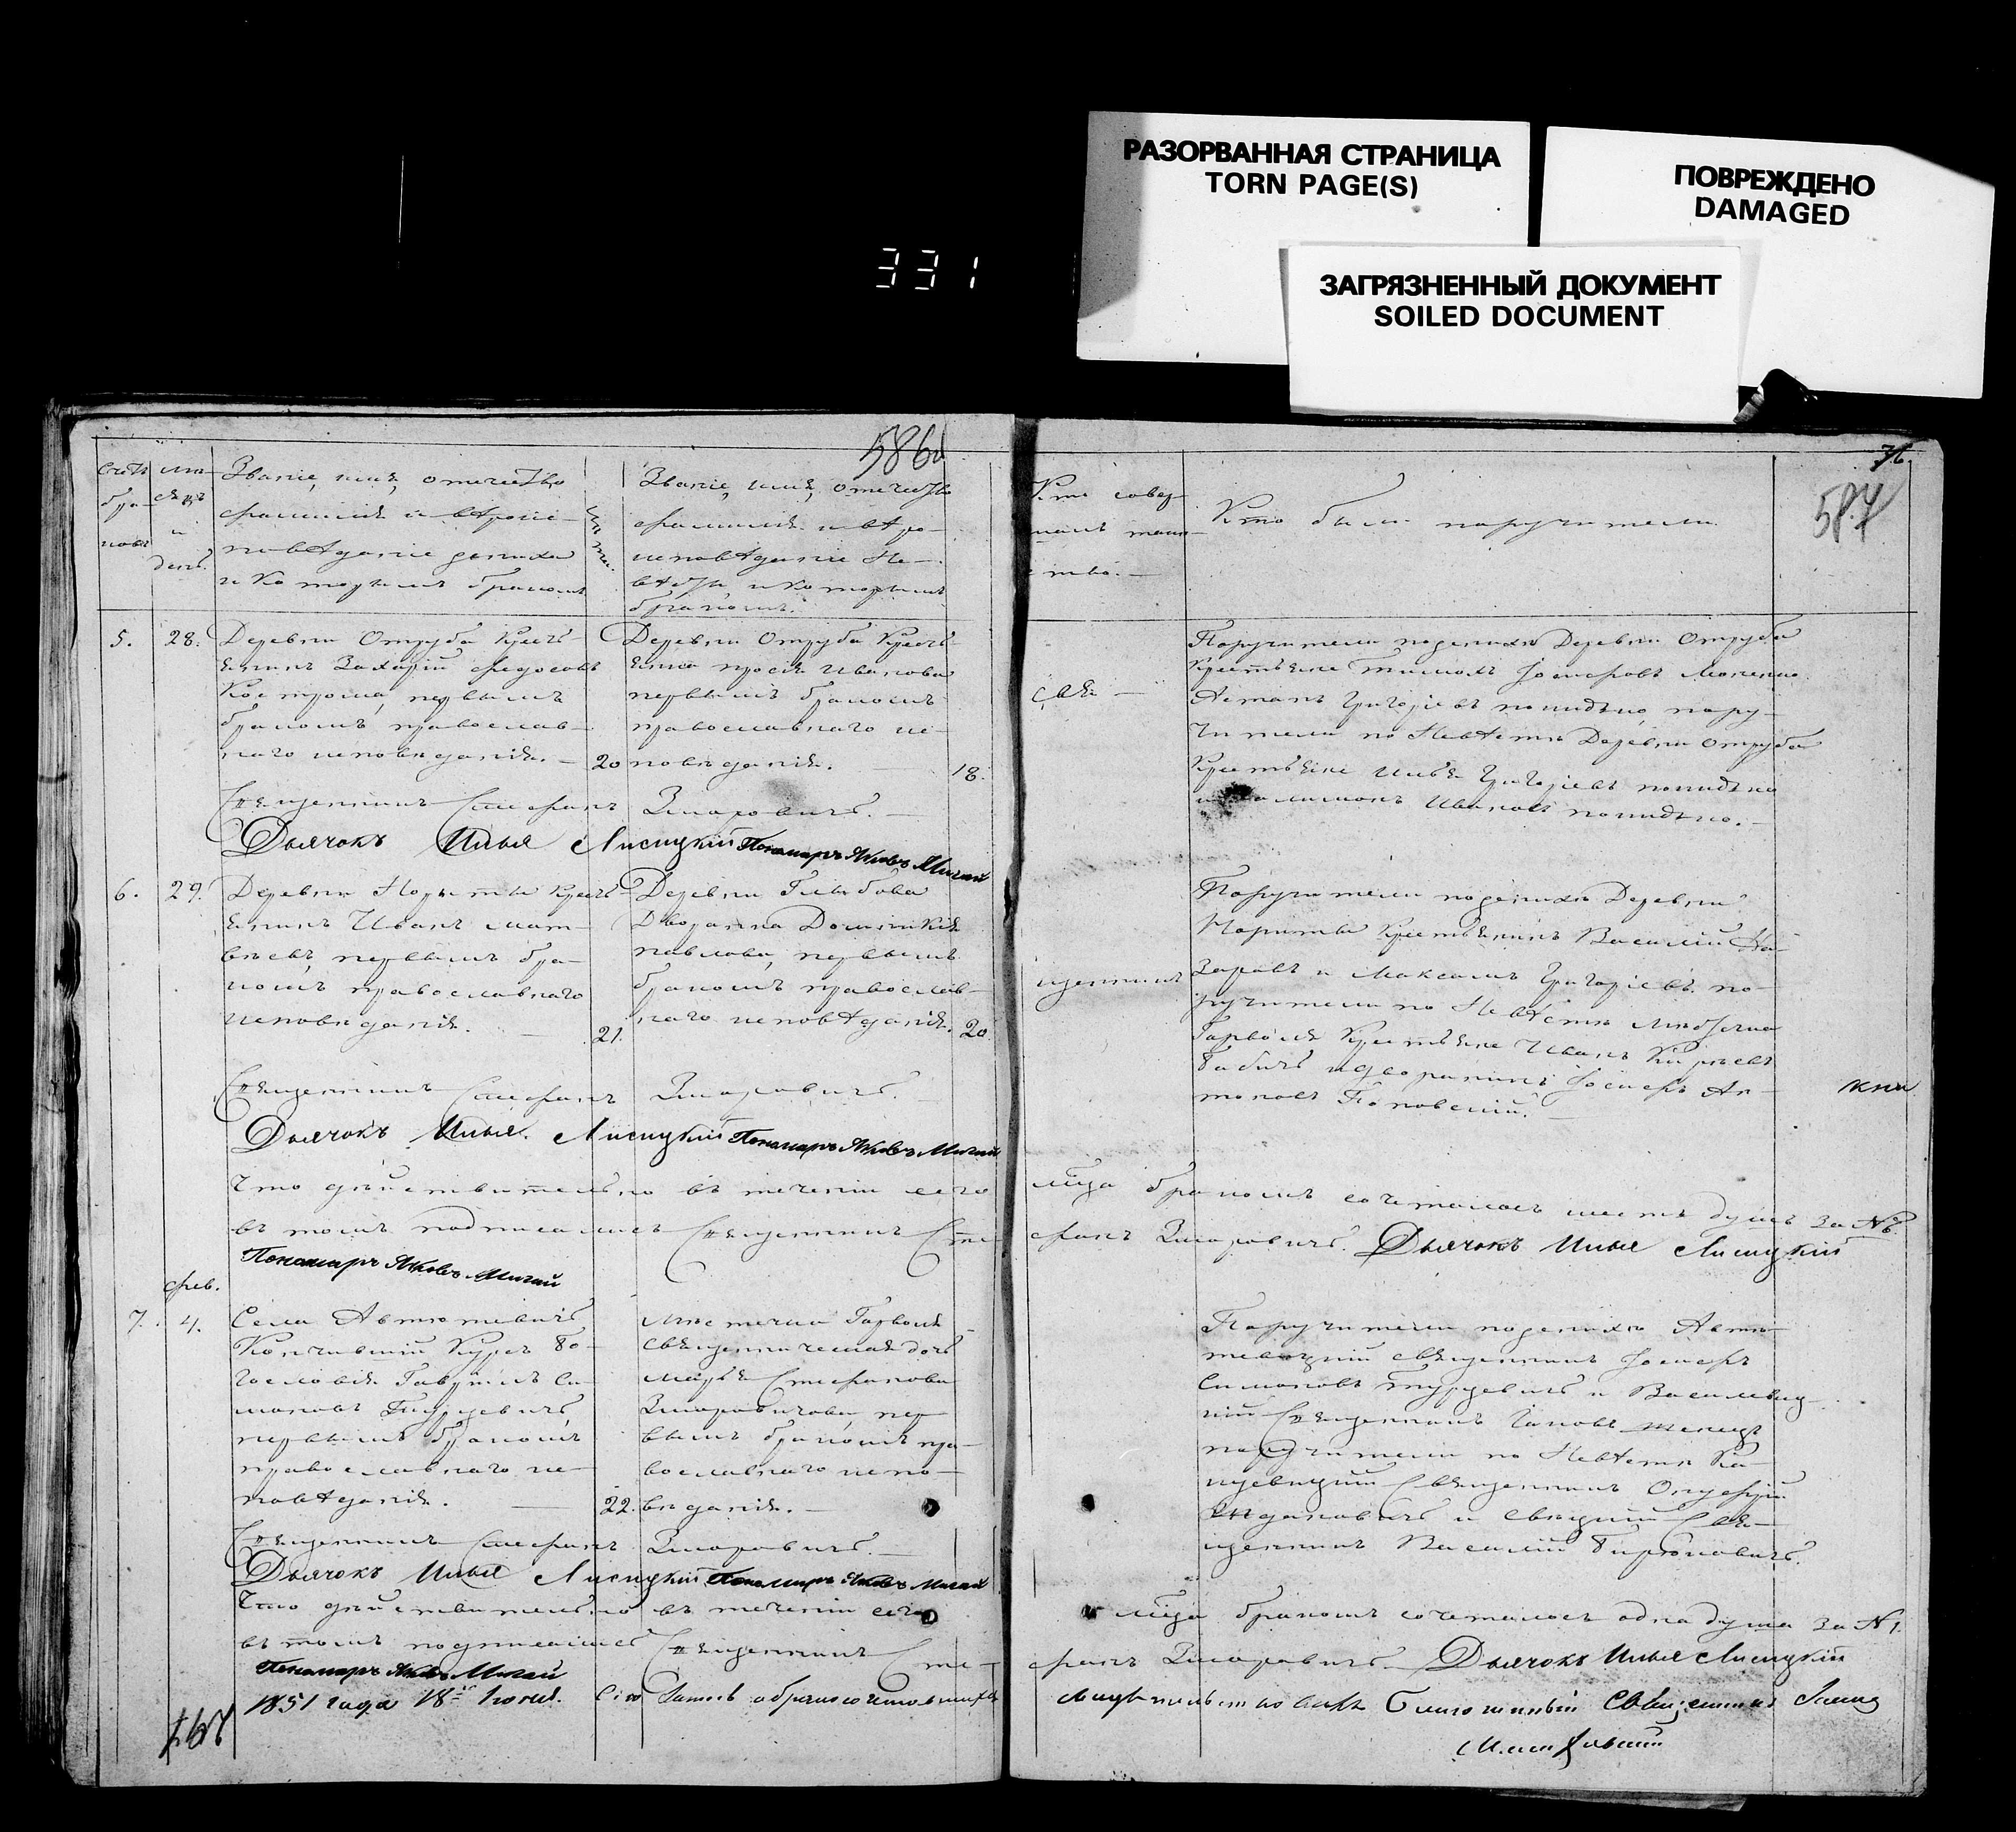 РАЗОРВАННАЯ СТРАНИЦА
TORN PAGE(S)
ПОВРЕЖДЕНО
DAMAGED
ЗАГРЯЗНЕННЫЙ ДОКУМЕНТ
SOILED DOCUMENT
331
586
Счетъ
бра-
ковъ
мѣ-
сяцъ
и
день.
Званіе, имя, отечество
фамилія и вѣроис-
повѣданіе жениха
и которымъ бракомъ
Званіе, имя, отечество
фамилія и вѣро-
исповѣданіе Не-
вѣсты, и которымъ
бракомъ.
5.
28.
Деревни Отруба Кресть-
янинъ Захарій Федосовъ
Кострома, первымъ
бракомъ православ-
наго исповѣданія.
20
Деревни Отруба Кресть-
янка Иванова
первымъ бракомъ
православнаго ис-
повѣданія.
18.
Священникъ Стефанъ Змаровичъ.
Дьячокъ Илья Лисицкій Пономарь Яковъ Мигай
6.
29.
Деревни Норыты Кресть-
янинъ Иванъ Мат-
вѣевъ, первымъ бра-
комъ православнаго
исповѣданія.
21.
Деревни Глыбова
Дворянка Доминикія
Павлова, первымъ
бракомъ православ-
наго исповѣданія.
20.
Священникъ Стефанъ Змаровичъ.
Дьячокъ Илья Лисицкій Пономарь Яковъ Мигай
Что дѣйствительно въ теченіи сего
въ томъ подписались Священникъ Сте-
Пономарь Яковъ Мигай
фев.
7.
4.
Села Автютевичъ
Кончившій Курсъ Бо-
гословія Гавріилъ Си-
моновъ Турцевичъ,
первымъ бракомъ
православнаго ис-
повѣданія.
22.
Мѣстечка Горволя
Священническая дочь
Марья Стефанова
Змаровичова, пер-
вымъ бракомъ пра-
вославнаго испо-
вѣданія.
Священникъ Стефанъ Змаровичъ.
Дьячокъ Илья Лисицкій Пономарь Яковъ Мигай
Что дѣйствительно въ теченіи сего
въ томъ подписались Священникъ Сте-
Пономарь Яковъ Мигай
1851 года 18 Іюня. Сію Запись о бракосочетавшихся
76.
587
Кто совер-
шалъ таин-
ство.
Кто были поручители.
Свя-
Поручители по женихѣ Деревни Отруба
Крестьяне Іосифовъ
Григоріевъ пору-
чители по Невѣстѣ Деревни Отруба
Крестьяне Илья Григоріевъ
Ивановъ
щенникъ
Поручители по женихѣ Деревни
Норыты Крестьянинъ Василій На-
заровъ и Максимъ Григоріевъ по-
ручители по Невѣстѣ Мѣстечка
Горволя Крестьяне Иванъ
Бабичъ и дворянинъ Іосифъ Ан-
тоновъ
мѣсяца бракомъ сочеталось шесть душъ За №6.
фанъ Змаровичъ. Дьячокъ Илья Лисицкій
Поручители по женихѣ Автю-
тевицкій священникъ Іосифъ
Симоновъ Турцевичъ и Василевиц-
кій Священникъ
поручители по Невѣстѣ Ка-
цевицкій Священникъ Онуфрій
и Свядцкій Свя-
щенникъ Василій
мѣсяца бракомъ сочеталось одна душа За №1.
фанъ Змаровичъ. Дьячокъ Илья Лисицкій
свидѣтельствовалъ Благочинный Священникъ